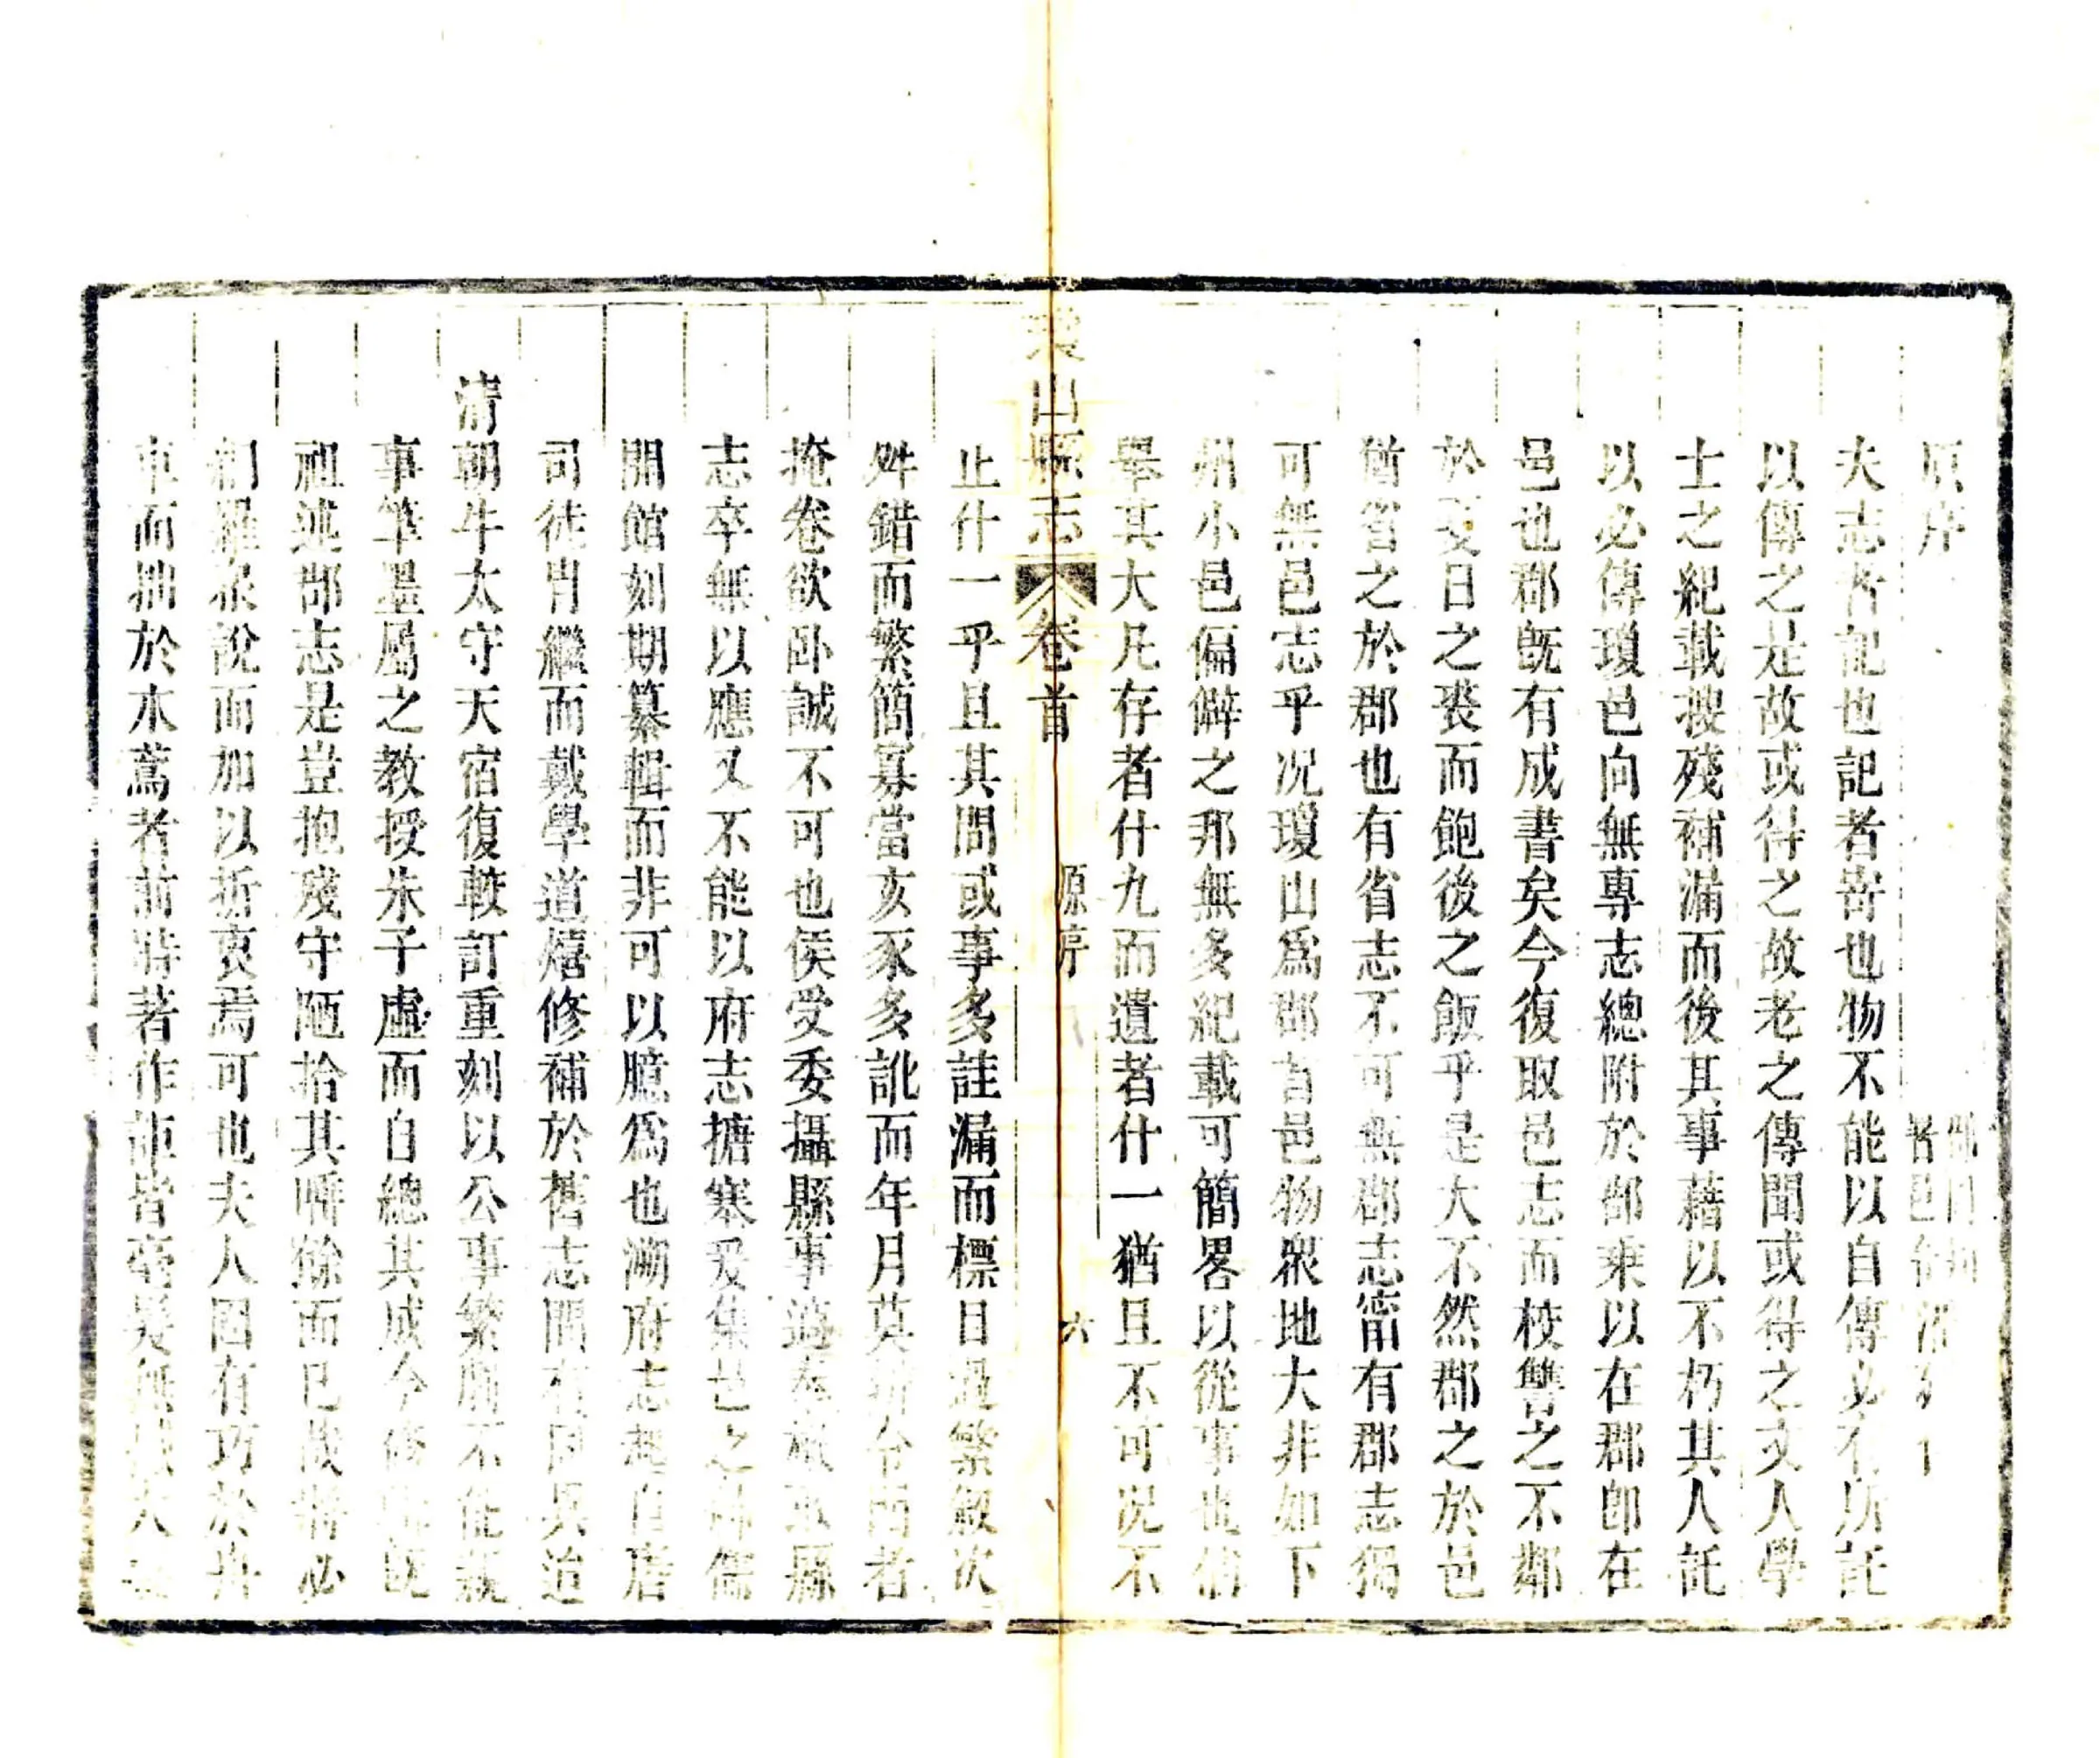 原序
郡同知
署邑令潘
夫志者記也記者寄也物不能以自傳必有所託
以傳之是故或得之故老之傳聞或得之文人學
士之紀載搜殘補漏而後其事藉以不朽其人託
以必傳瓊邑向無專志總附於郡乘以在郡卽在
邑也郡旣有成書矣今復取邑志而校讐之不鄰
於夏日之裘而飽後之飯乎是大不然郡之於邑
猶省之於郡也有省志不可無郡志甯有郡志獨
可無邑志乎况瓊山爲郡首邑物衆地大非如下
州小邑偏僻之邦無多紀載可簡畧以從事也倘
舉其大凡存者什九而遺者什一猶且不可况不
瓊山縣志
卷首
原序
六
止什一乎且其間或事多註漏而標目過繁敘次
舛錯而繁簡寡當亥豕多訛而年月莫辨令閱者
掩卷欲卧誠不可也侯受委攝縣事適奉檄取縣
志卒無以應又不能以府志搪塞爰集邑之紳儒
開館刻期纂輯而非可以臆爲也溯府志起自唐
司徒胄繼而戴學道熺修補於舊志間有因異治
清
朝牛太守天宿復較訂重刻以公事繁劇不能親
事筆墨屬之教授朱子虛而自總其成今修縣旣
祖述郡志是豈抱殘守陋拾其唾餘而已哉將必
網羅衆說而加以折衷焉可也夫人固有巧於舟
車而拙於木蔦者前時著作詎皆毫髮無憾大